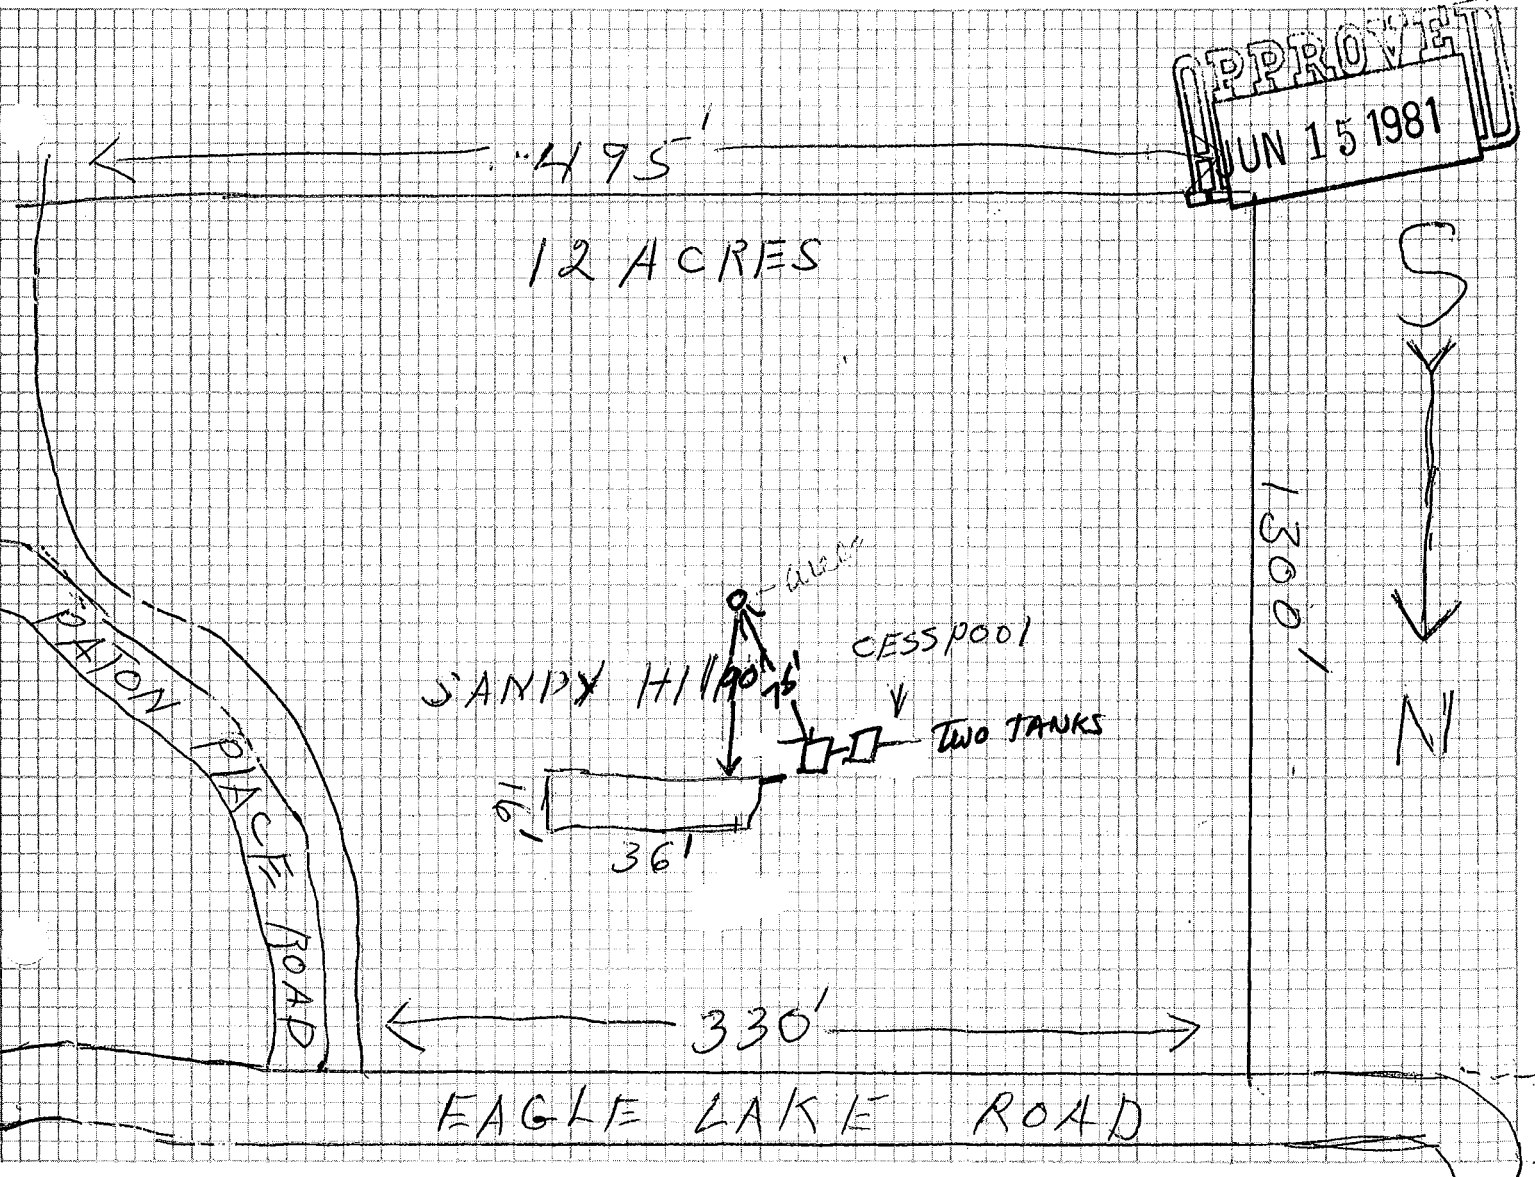 APPROVED
JUN 15 1981
495'
12 ACRES
S
1300'
CESSPOOL
SANDY HILL
90'
75'
TWO TANKS
N
PATON PLACE ROAD
16'
36'
330'
EAGLE LAKE ROAD